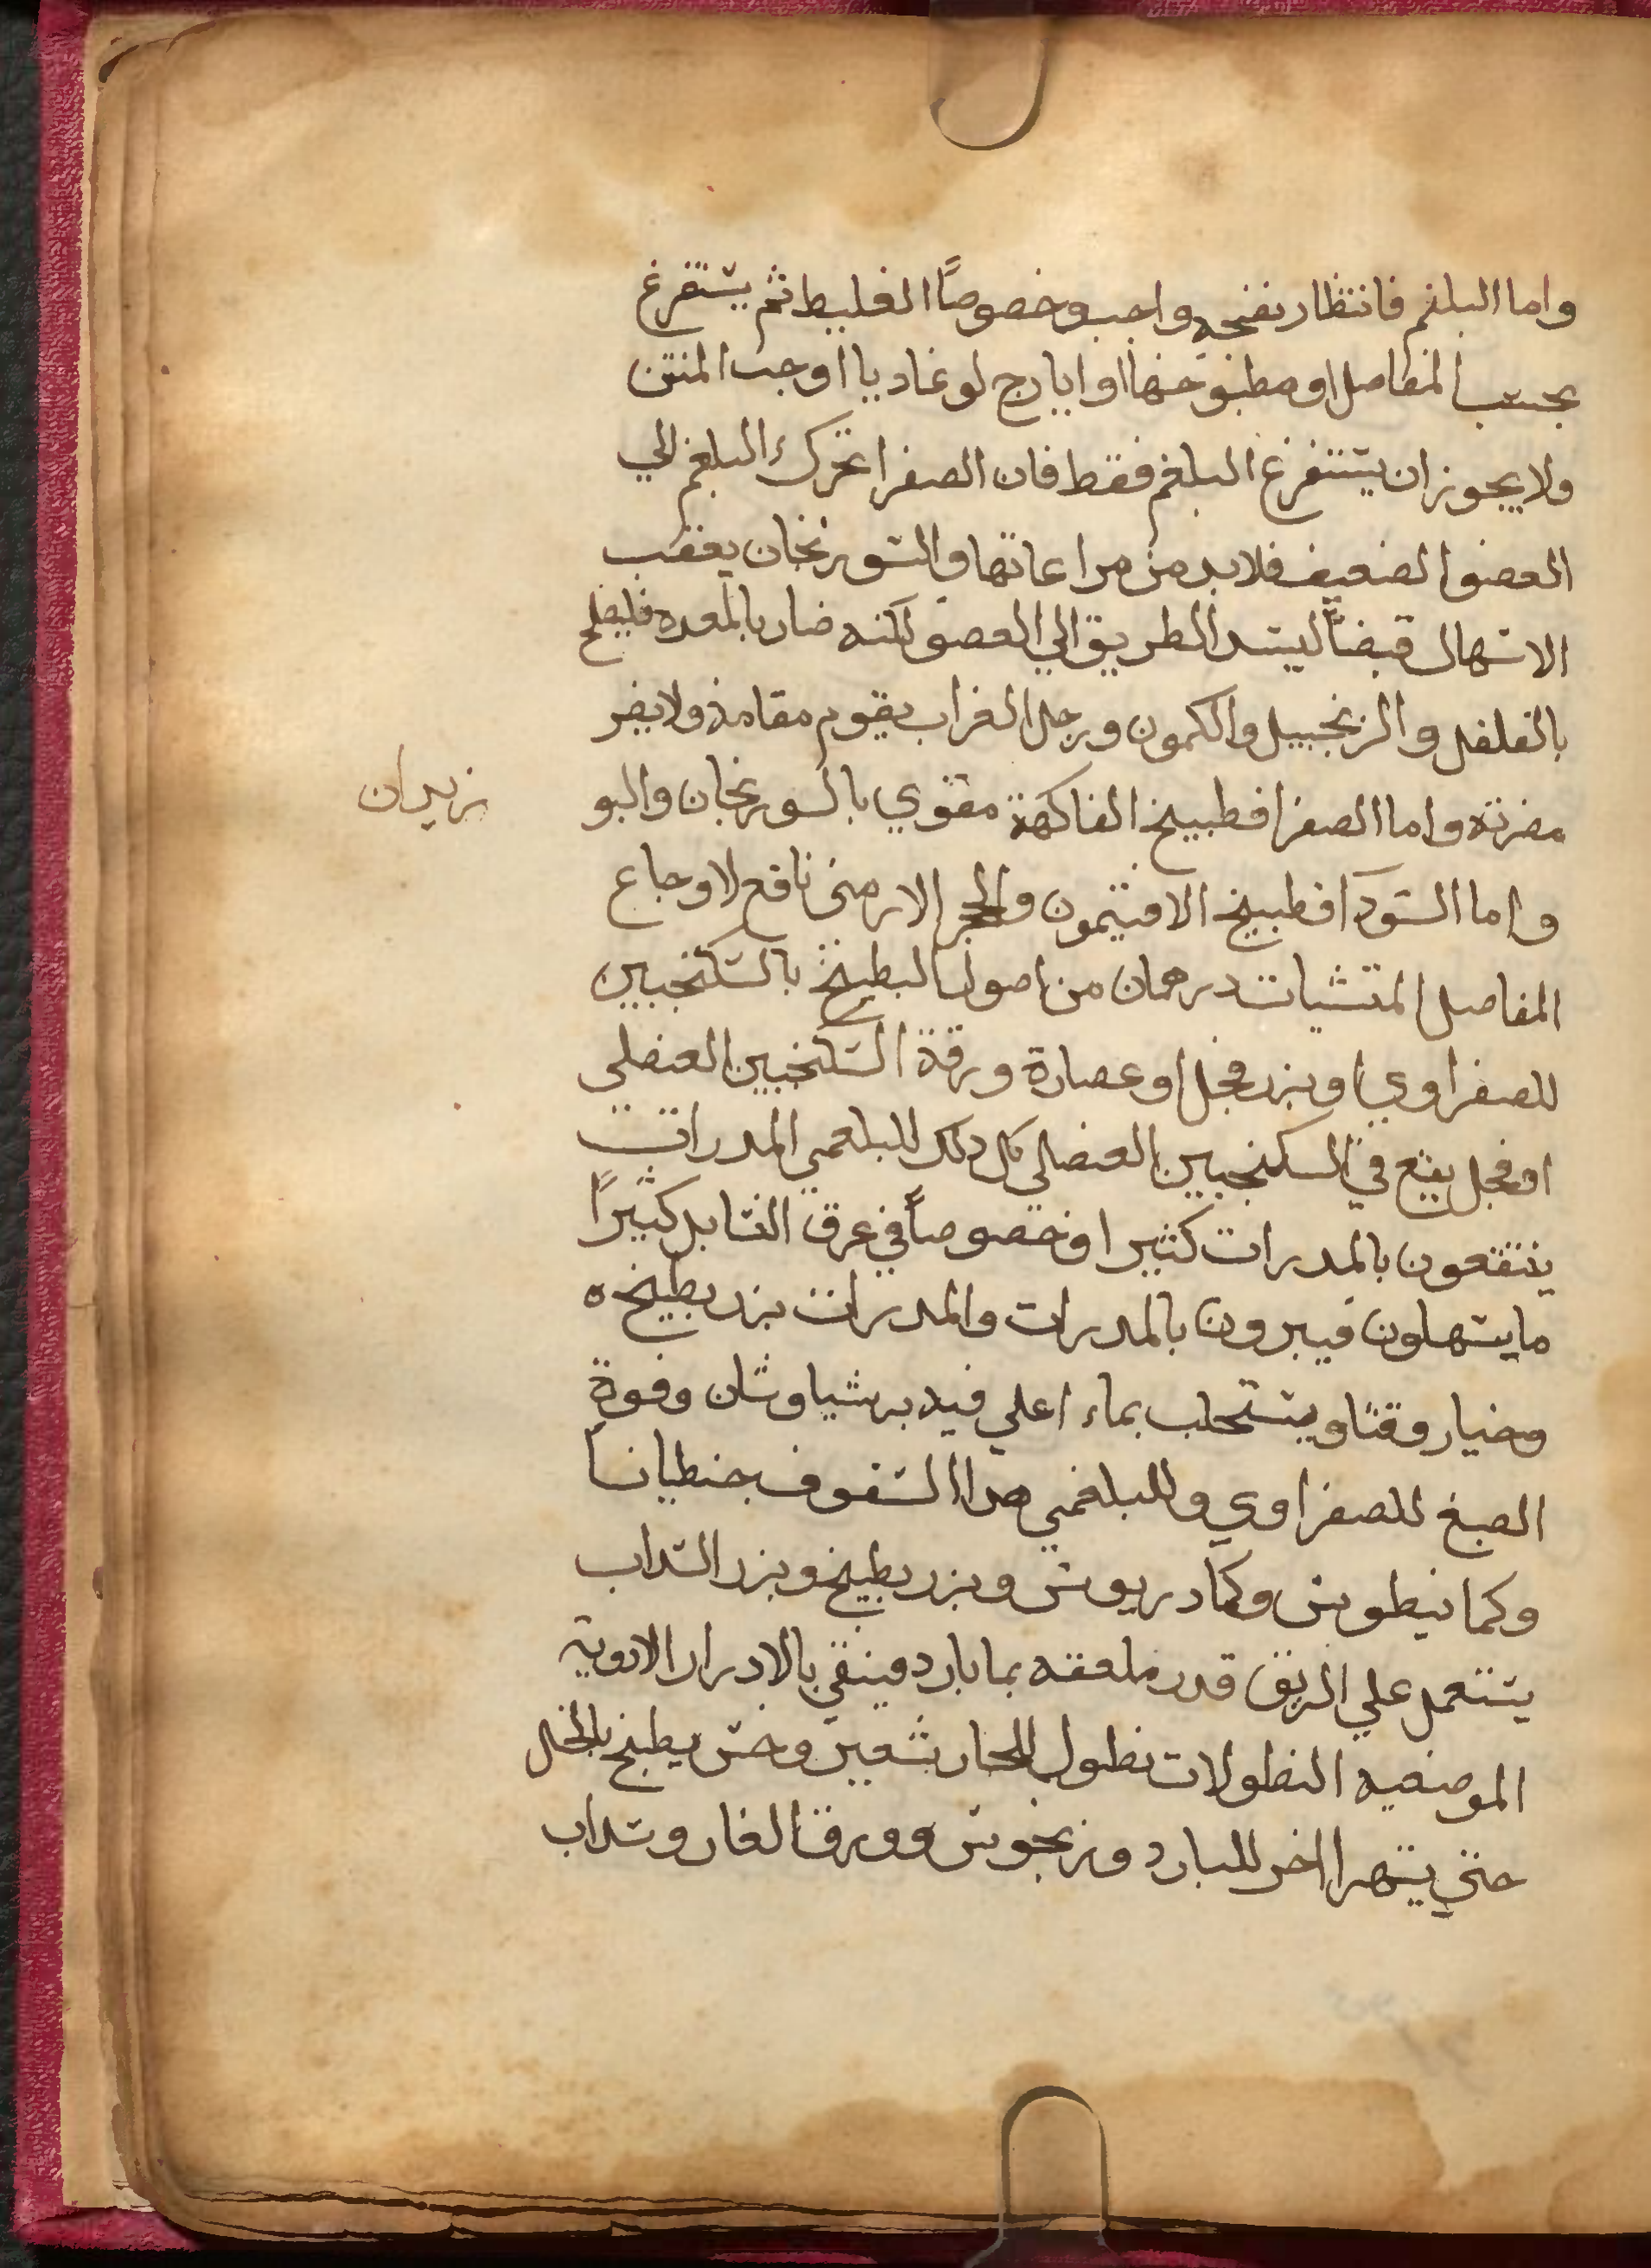 واما البلغم فانتظار نضجه واجب وخصوصًا الغليظ ثم يستفرغ
بحسب المفاصل او مطبوخها او ايارج لوغاديا او حب المنتن
ولا يجوز ان يستفرغ البلغم فقط فان الصفرا تحرك البلغم الي
العضو الضعيف فلابد من مراعاتها والسورنجان يعقب
الاسهال قبضًا ليسد الطريق الي العضو لكنه ضار بالمعده فليصلح
بالفلفل والزنجبيل والكمون ورجل الغراب يقوم مقامه ولا يضر
مضرته واما الصفرا فطبيخ الفاكهة مقوي بالسورنجان والبو
زيدان
واما السودآ فطبيخ الافتيمون والحجر الارمني نافع لاوجاع
المفاصل المقسيات درهمان من اصول البطيخ بالسكنجبين
للصفراوي او بزر فجل او عصارة ورقة السكنجبين العنصلي
او فجل يقع في السكنجبين العنصلي كل ذلك للبلغمي المدرات
ينتفعون بالمدرات كثيرا وخصوصاً في عرق النسا بل كثيرًا
ما يسهلون فيبرون بالمدرات والمدرات بزر بطيخ ه
وخيار وقثا ويستحلب بماء اغلي فيه برشياوشان وفوة
الصبغ للصفراوي وللبلغمي هذا السفوف جنطيانا
وكمانيطوس وكمادريوس وبزر بطيخ وبزر السداب
يستعمل علي الريق قدر ملعقه بما بارد فينقي بالادرار الادوية
الموضعيه النطولات نطول للحار شعير وخس يطبخ بالخل
حتي يتهرا اخر للبارد مرزنجوش وورق الغار وسداب